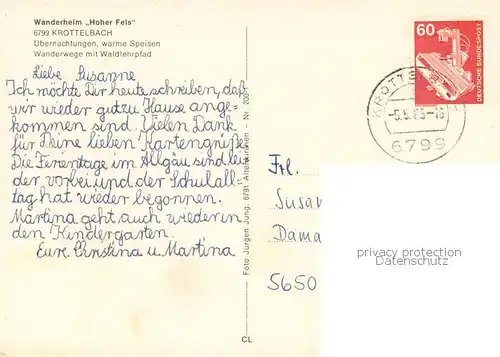 Wanderheim „Hoher Fels"
6799 KROTTELBACH
Übernachtungen, warme Speisen
Wanderwege mit Waldlehrpfad
Liebe Susanne
Ich möchte Dir heute schreiben, daß
wir wieder gut zu Hause ange-
kommen sind. Vielen Dank
für Deine lieben Kartengrüße
Die Ferientage im Allgäu sind lei
der vorbei und der Schulall-
tag hat wieder begonnen.
Martina geht auch wieder in
den Kindergarten.
Eure Christina u. Martina
Foto Jürgen Jung, 6791
CL
60
DEUTSCHE BUNDESPOST
KROTTE
6799
Frl.
Susan
Dama
5650
privacy protection
Datenschutz